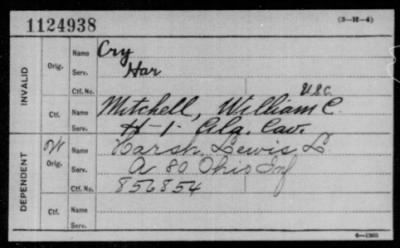 1124938
(3-H-4)
INVALID
Orig.
Name Cry
Serv. Har
Ctf. No. U.S.C.
Ctf.
Name Mitchell, William C.
Serv. H-1- Ala. Cav.
DEPENDENT
W
Orig.
Name Harsh Lewis L
Serv. A 80 Ohio Inf
Ctf. No. 856854
Ctf.
Name
Serv.